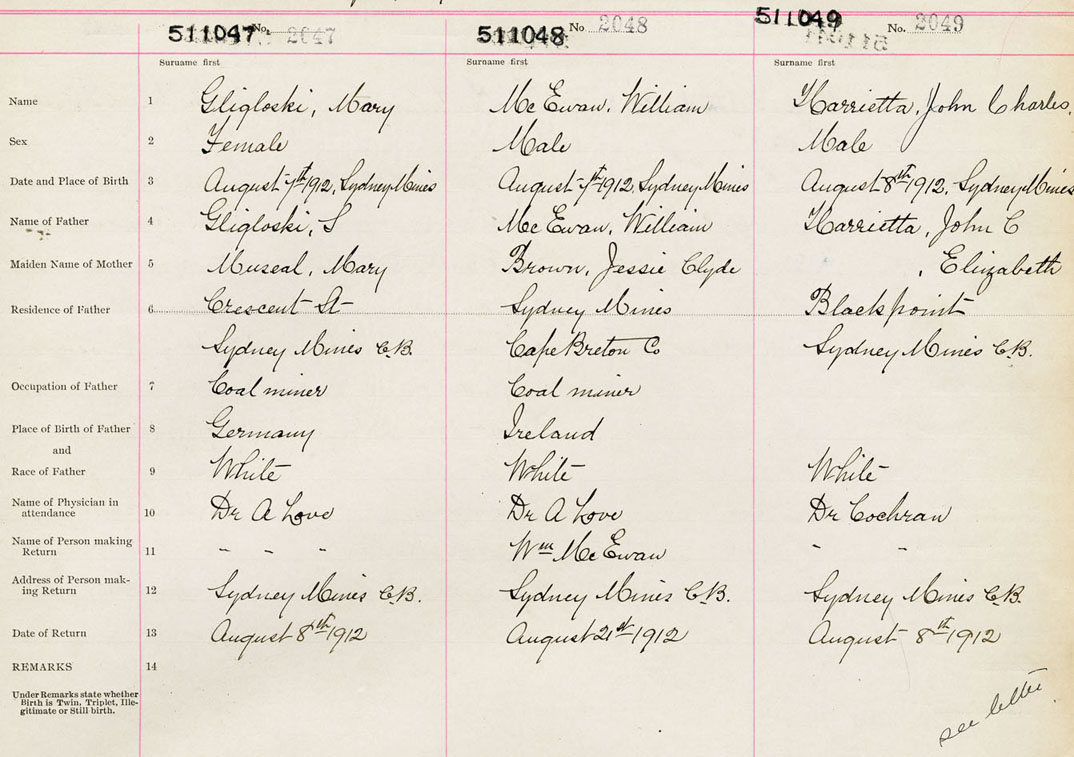 511047 No. 2047 511048 No 2048 511049 No. 2049
Surname first Surname first Surname first
Name 1 Gligloski, Mary McEwan, William Harrietta, John Charles,
Sex 2 Female Male Male
Date and Place of Birth 3 August 7th 1912, Sydney Mines August 7th 1912, Sydney Mines August 8th 1912, Sydney Mines
Name of Father 4 Gligloski, S McEwan, William Harrietta, John C
Maiden Name of Mother 5 Museal, Mary Brown, Jessie Clyde , Elizabeth
Residence of Father 6 Crescent St Sydney Mines Black point
Sydney Mines C.B. Cape Breton Co Sydney Mines C.B.
Occupation of Father 7 Coal miner Coal miner
Place of Birth of Father 8 Germany Ireland
and
Race of Father 9 White White White
Name of Physician in
attendance 10 Dr A Love Dr A Love Dr Cochran
Name of Person making
Return 11 " " " Wm McEwan " "
Address of Person mak-
ing Return 12 Sydney Mines C.B. Sydney Mines C.B. Sydney Mines C.B.
Date of Return 13 August 8th 1912 August 21st 1912 August 8th 1912
REMARKS 14
Under Remarks state whether
Birth is Twin, Triplet, Ille-
gitimate or Still birth.
see letter